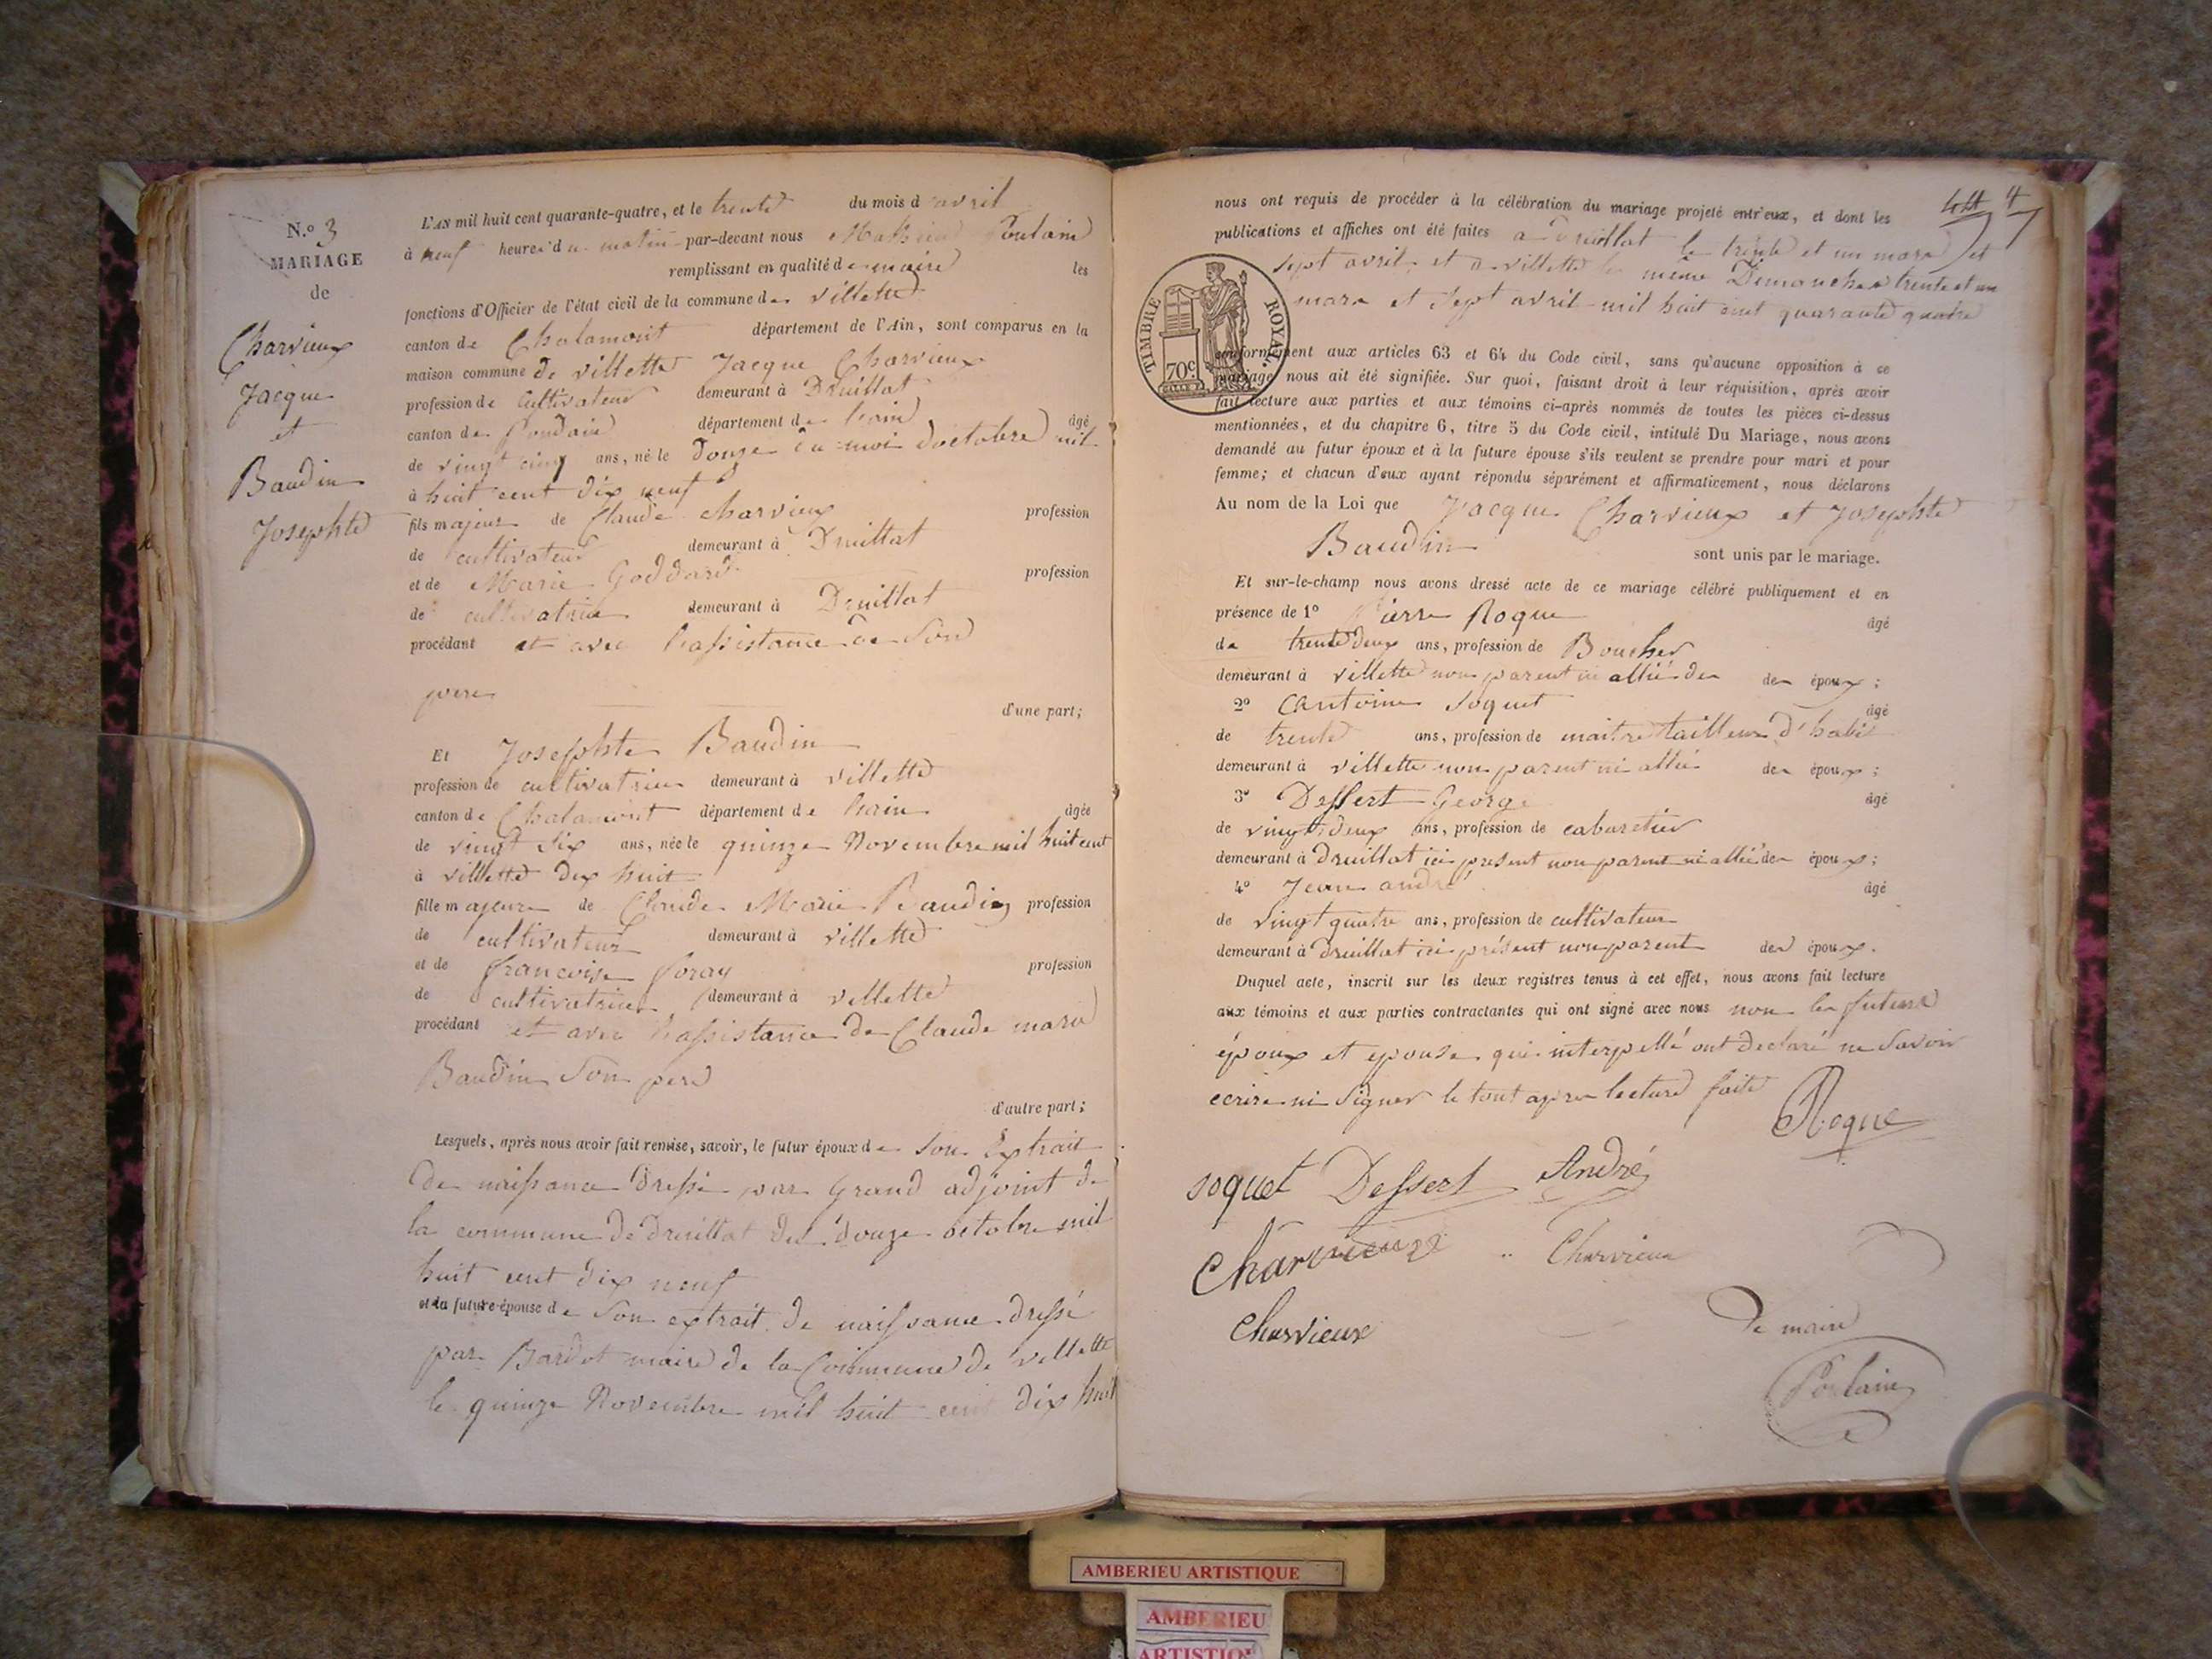 N.o 3
MARIAGE
de
Charvieux
Jacque
et
Baudin
Josephte
L'AN mil huit cent quarante-quatre, et le trente du mois d avril
à neuf heures du matin par-devant nous Mathieu Poulain
remplissant en qualité de maire les
fonctions d'Officier de l'état civil de la commune de villette
canton de Chalamont département de l'Ain, sont comparus en la
maison commune de villette Jacque Charvieux
profession de Cultivateur demeurant à Druillat
canton de Pondain département de lain âgé
de vingt cinq ans, né le Douze du moi d'octobre mil
à huit cent dix neuf
fils majeur de Claude Charvieux profession
de cultivateur demeurant à Druillat
et de Marie Goddard profession
de cultivatrice demeurant à Druillat
procédant et avec l'assistance de Son
pere
d'une part;
Et Josephte Baudin
profession de cultivatrice demeurant à villette
canton de Chalamont département de lain âgée
de vingt Six ans, née le quinze Novembre mil huit cent
à villette dix huit
fille majeure de Claude Marie Baudin profession
de cultivateur demeurant à villette
et de francoise foray profession
de cultivatrice demeurant à villette
procédant et avec l'assistance de Claude marie
Baudin Son pere
d'autre part;
Lesquels, après nous avoir fait remise, savoir, le futur époux de Son Extrait
de naissance dressé par Grand adjoint de
la commune de Druillat du douze octobre mil
huit cent dix neuf
et la future épouse de Son extrait de naissance dressé
par Bardet maire de la Commune de villette
le quinze Novembre mil huit cent dix huit
4
nous ont requis de procéder à la célébration du mariage projeté entr'eux, et dont les
publications et affiches ont été faites a Druillat le trente et un mars et
sept avril et a villette les meme Dimanches trente et un
mars et Sept avril mil huit cent quarante quatre
TIMBRE ROYAL.
70c.
conformément aux articles 63 et 64 du Code civil, sans qu'aucune opposition à ce
mariage nous ait été signifiée. Sur quoi, faisant droit à leur réquisition, après avoir
fait lecture aux parties et aux témoins ci-après nommés de toutes les pièces ci-dessus
mentionnées, et du chapitre 6, titre 5 du Code civil, intitulé Du Mariage, nous avons
demandé au futur époux et à la future épouse s'ils veulent se prendre pour mari et pour
femme; et chacun d'eux ayant répondu séparément et affirmativement, nous déclarons
Au nom de la Loi que Jacque Charvieux et Josephte
Baudin sont unis par le mariage.
Et sur-le-champ nous avons dressé acte de ce mariage célébré publiquement et en
présence de 1o Pierre Roque âgé
de trente deux ans, profession de Boucher
demeurant à villette non parent ni allié des des époux;
2o Antoine Soquet âgé
de trente ans, profession de maitre tailleur d'habit
demeurant à villette non parent ni allié des époux;
3o Dessert George âgé
de vingt deux ans, profession de cabaretier
demeurant à Druillat ici present non parent ni allié des époux;
4o Jean andré âgé
de vingt quatre ans, profession de cultivateur
demeurant à Druillat ici présent non parent des époux.
Duquel acte, inscrit sur les deux registres tenus à cet effet, nous avons fait lecture
aux témoins et aux parties contractantes qui ont signé avec nous non les futurs
époux et epouse qui interpellé ont declaré ne Savoir
ecrire ni Signer le tout apres lecture faite
Roque
soquet Dessert André
Charvieux Charvieux
Charvieux
Le maire
Poulain
AMBERIEU ARTISTIQUE
AMBERIEU
ARTISTIQ